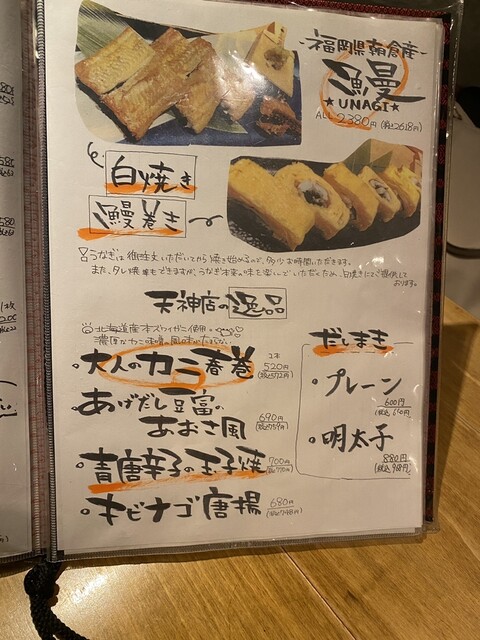 福岡県朝倉産
鰻
★UNAGI★
ALL 2380円(税込2618円)
白焼き
鰻巻き
うなぎは御注文いただいてから焼き始めるので、多少お時間いただきます。
また、タレ焼きもできますが、うなぎ本来の味を楽しんでいただくため、白焼きにてご提供しております。
天神店の逸品
北海道産本ズワイガニ使用
濃厚なカニ味噌の風味がたまらない
大人のカニ春巻 2本 520円(税込572円)
あげだし豆富の
あおさ風 690円(税込759円)
青唐辛子の玉子焼 700円(税込770円)
キビナゴ唐揚 680円(税込748円)
だしまき
プレーン
600円
(税込 660円)
明太子
880円
(税込 968円)